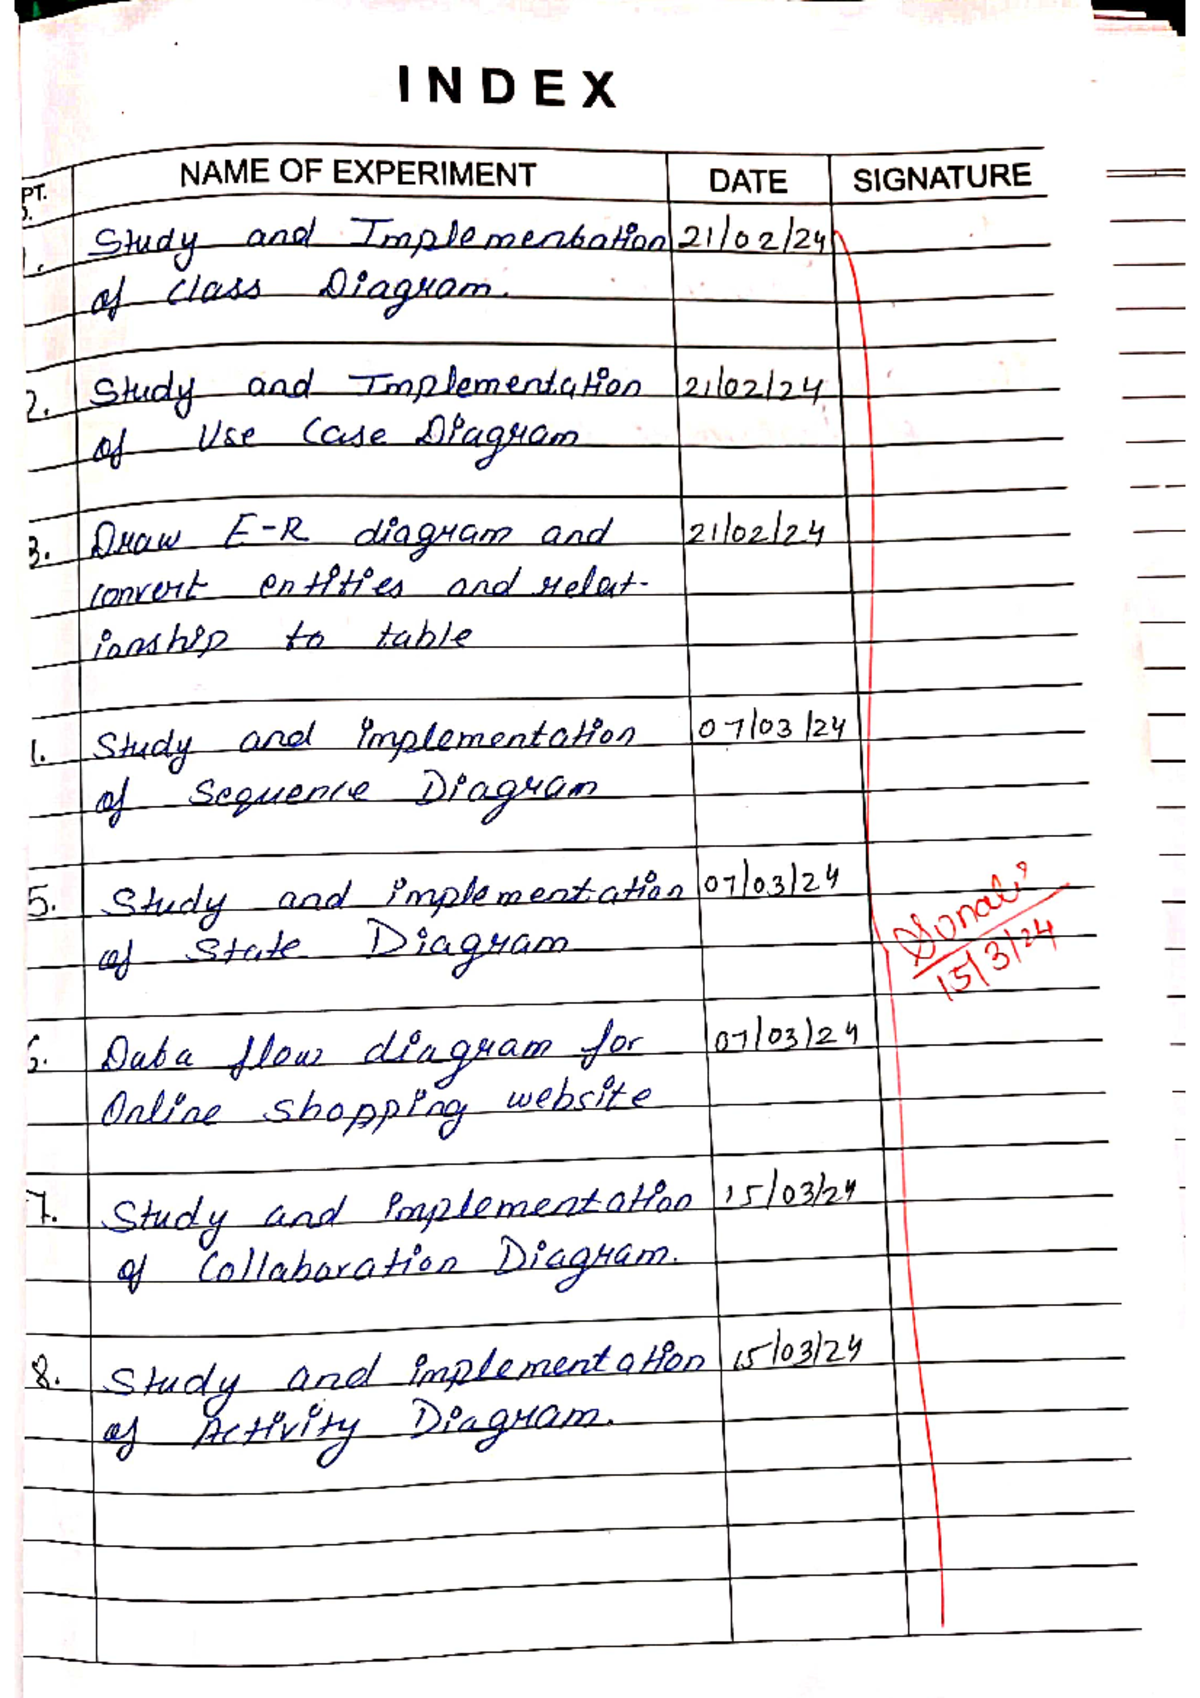 INDEX
PT. NAME OF EXPERIMENT DATE SIGNATURE
1. Study and Implementation 21/02/24
of Class Diagram.
2. Study and Implementation 21/02/24
of Use Case Diagram
3. Draw E-R diagram and 21/02/24
convert entities and relat-
ionship to table
Study and implementation 07/03/24
of Sequence Diagram
5. Study and implementation 07/03/24
of State Diagram
Sonali
15/3/24
6. Data flow diagram for 07/03/24
Online shopping website
7. Study and implementation 15/03/24
of Collaboration Diagram.
8. Study and implementation 15/03/24
of Activity Diagram.